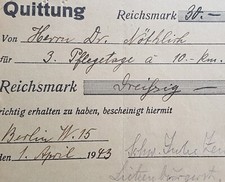 Quittung Reichsmark 30.–
Von Herrn Dr.
für 3. Pflegetage à 10.-
Reichsmark Dreißig
richtig erhalten zu haben, bescheinigt hiermit
Berlin W. 15
den 1. April 1943